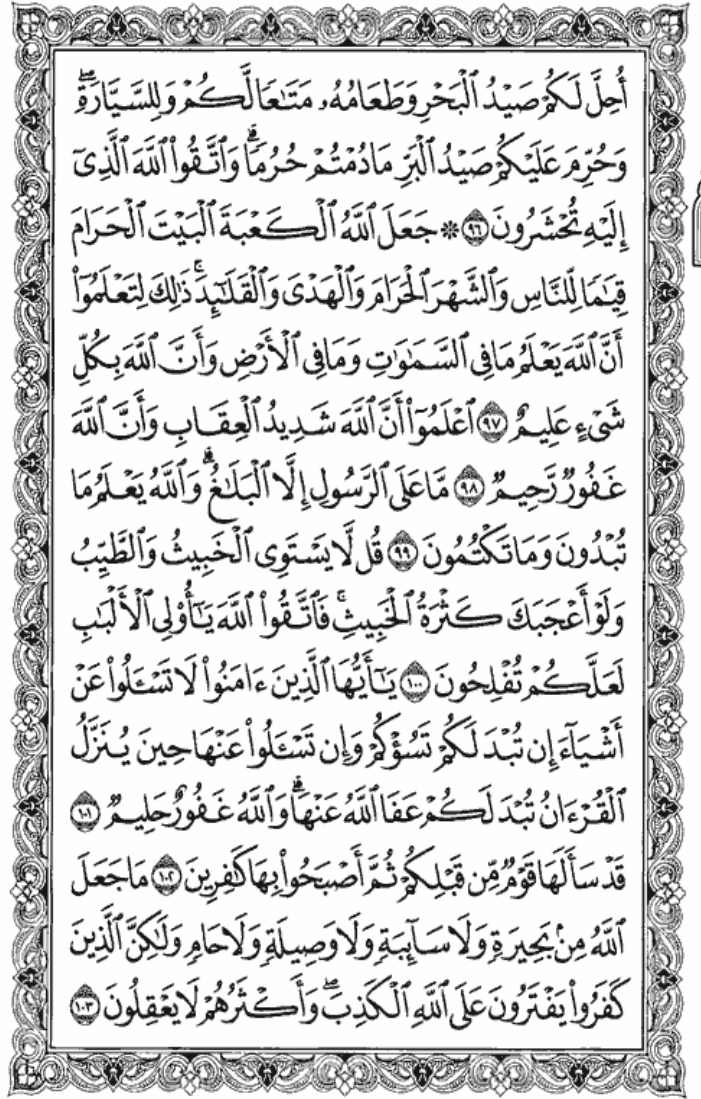 أُحِلَّ لَكُمْ صَيْدُ ٱلْبَحْرِ وَطَعَامُهُۥ مَتَٰعًا لَّكُمْ وَلِلسَّيَّارَةِۖ
وَحُرِّمَ عَلَيْكُمْ صَيْدُ ٱلْبَرِّ مَا دُمْتُمْ حُرُمًاۗ وَٱتَّقُوا۟ ٱللَّهَ ٱلَّذِىٓ
إِلَيْهِ تُحْشَرُونَ ٩٦ ۞ جَعَلَ ٱللَّهُ ٱلْكَعْبَةَ ٱلْبَيْتَ ٱلْحَرَامَ
قِيَٰمًا لِّلنَّاسِ وَٱلشَّهْرَ ٱلْحَرَامَ وَٱلْهَدْىَ وَٱلْقَلَٰٓئِدَۚ ذَٰلِكَ لِتَعْلَمُوٓا۟
أَنَّ ٱللَّهَ يَعْلَمُ مَا فِى ٱلسَّمَٰوَٰتِ وَمَا فِى ٱلْأَرْضِ وَأَنَّ ٱللَّهَ بِكُلِّ
شَىْءٍ عَلِيمٌ ٩٧ ٱعْلَمُوٓا۟ أَنَّ ٱللَّهَ شَدِيدُ ٱلْعِقَابِ وَأَنَّ ٱللَّهَ
غَفُورٌ رَّحِيمٌ ٩٨ مَّا عَلَى ٱلرَّسُولِ إِلَّا ٱلْبَلَٰغُۗ وَٱللَّهُ يَعْلَمُ مَا
تُبْدُونَ وَمَا تَكْتُمُونَ ٩٩ قُل لَّا يَسْتَوِى ٱلْخَبِيثُ وَٱلطَّيِّبُ
وَلَوْ أَعْجَبَكَ كَثْرَةُ ٱلْخَبِيثِۚ فَٱتَّقُوا۟ ٱللَّهَ يَٰٓأُو۟لِى ٱلْأَلْبَٰبِ
لَعَلَّكُمْ تُفْلِحُونَ ١٠٠ يَٰٓأَيُّهَا ٱلَّذِينَ ءَامَنُوا۟ لَا تَسْـَٔلُوا۟ عَنْ
أَشْيَآءَ إِن تُبْدَ لَكُمْ تَسُؤْكُمْ وَإِن تَسْـَٔلُوا۟ عَنْهَا حِينَ يُنَزَّلُ
ٱلْقُرْءَانُ تُبْدَ لَكُمْ عَفَا ٱللَّهُ عَنْهَاۗ وَٱللَّهُ غَفُورٌ حَلِيمٌ ١٠١
قَدْ سَأَلَهَا قَوْمٌ مِّن قَبْلِكُمْ ثُمَّ أَصْبَحُوا۟ بِهَا كَٰفِرِينَ ١٠٢ مَا جَعَلَ
ٱللَّهُ مِنۢ بَحِيرَةٍ وَلَا سَآئِبَةٍ وَلَا وَصِيلَةٍ وَلَا حَامٍ وَلَٰكِنَّ ٱلَّذِينَ
كَفَرُوا۟ يَفْتَرُونَ عَلَى ٱللَّهِ ٱلْكَذِبَۖ وَأَكْثَرُهُمْ لَا يَعْقِلُونَ ١٠٣